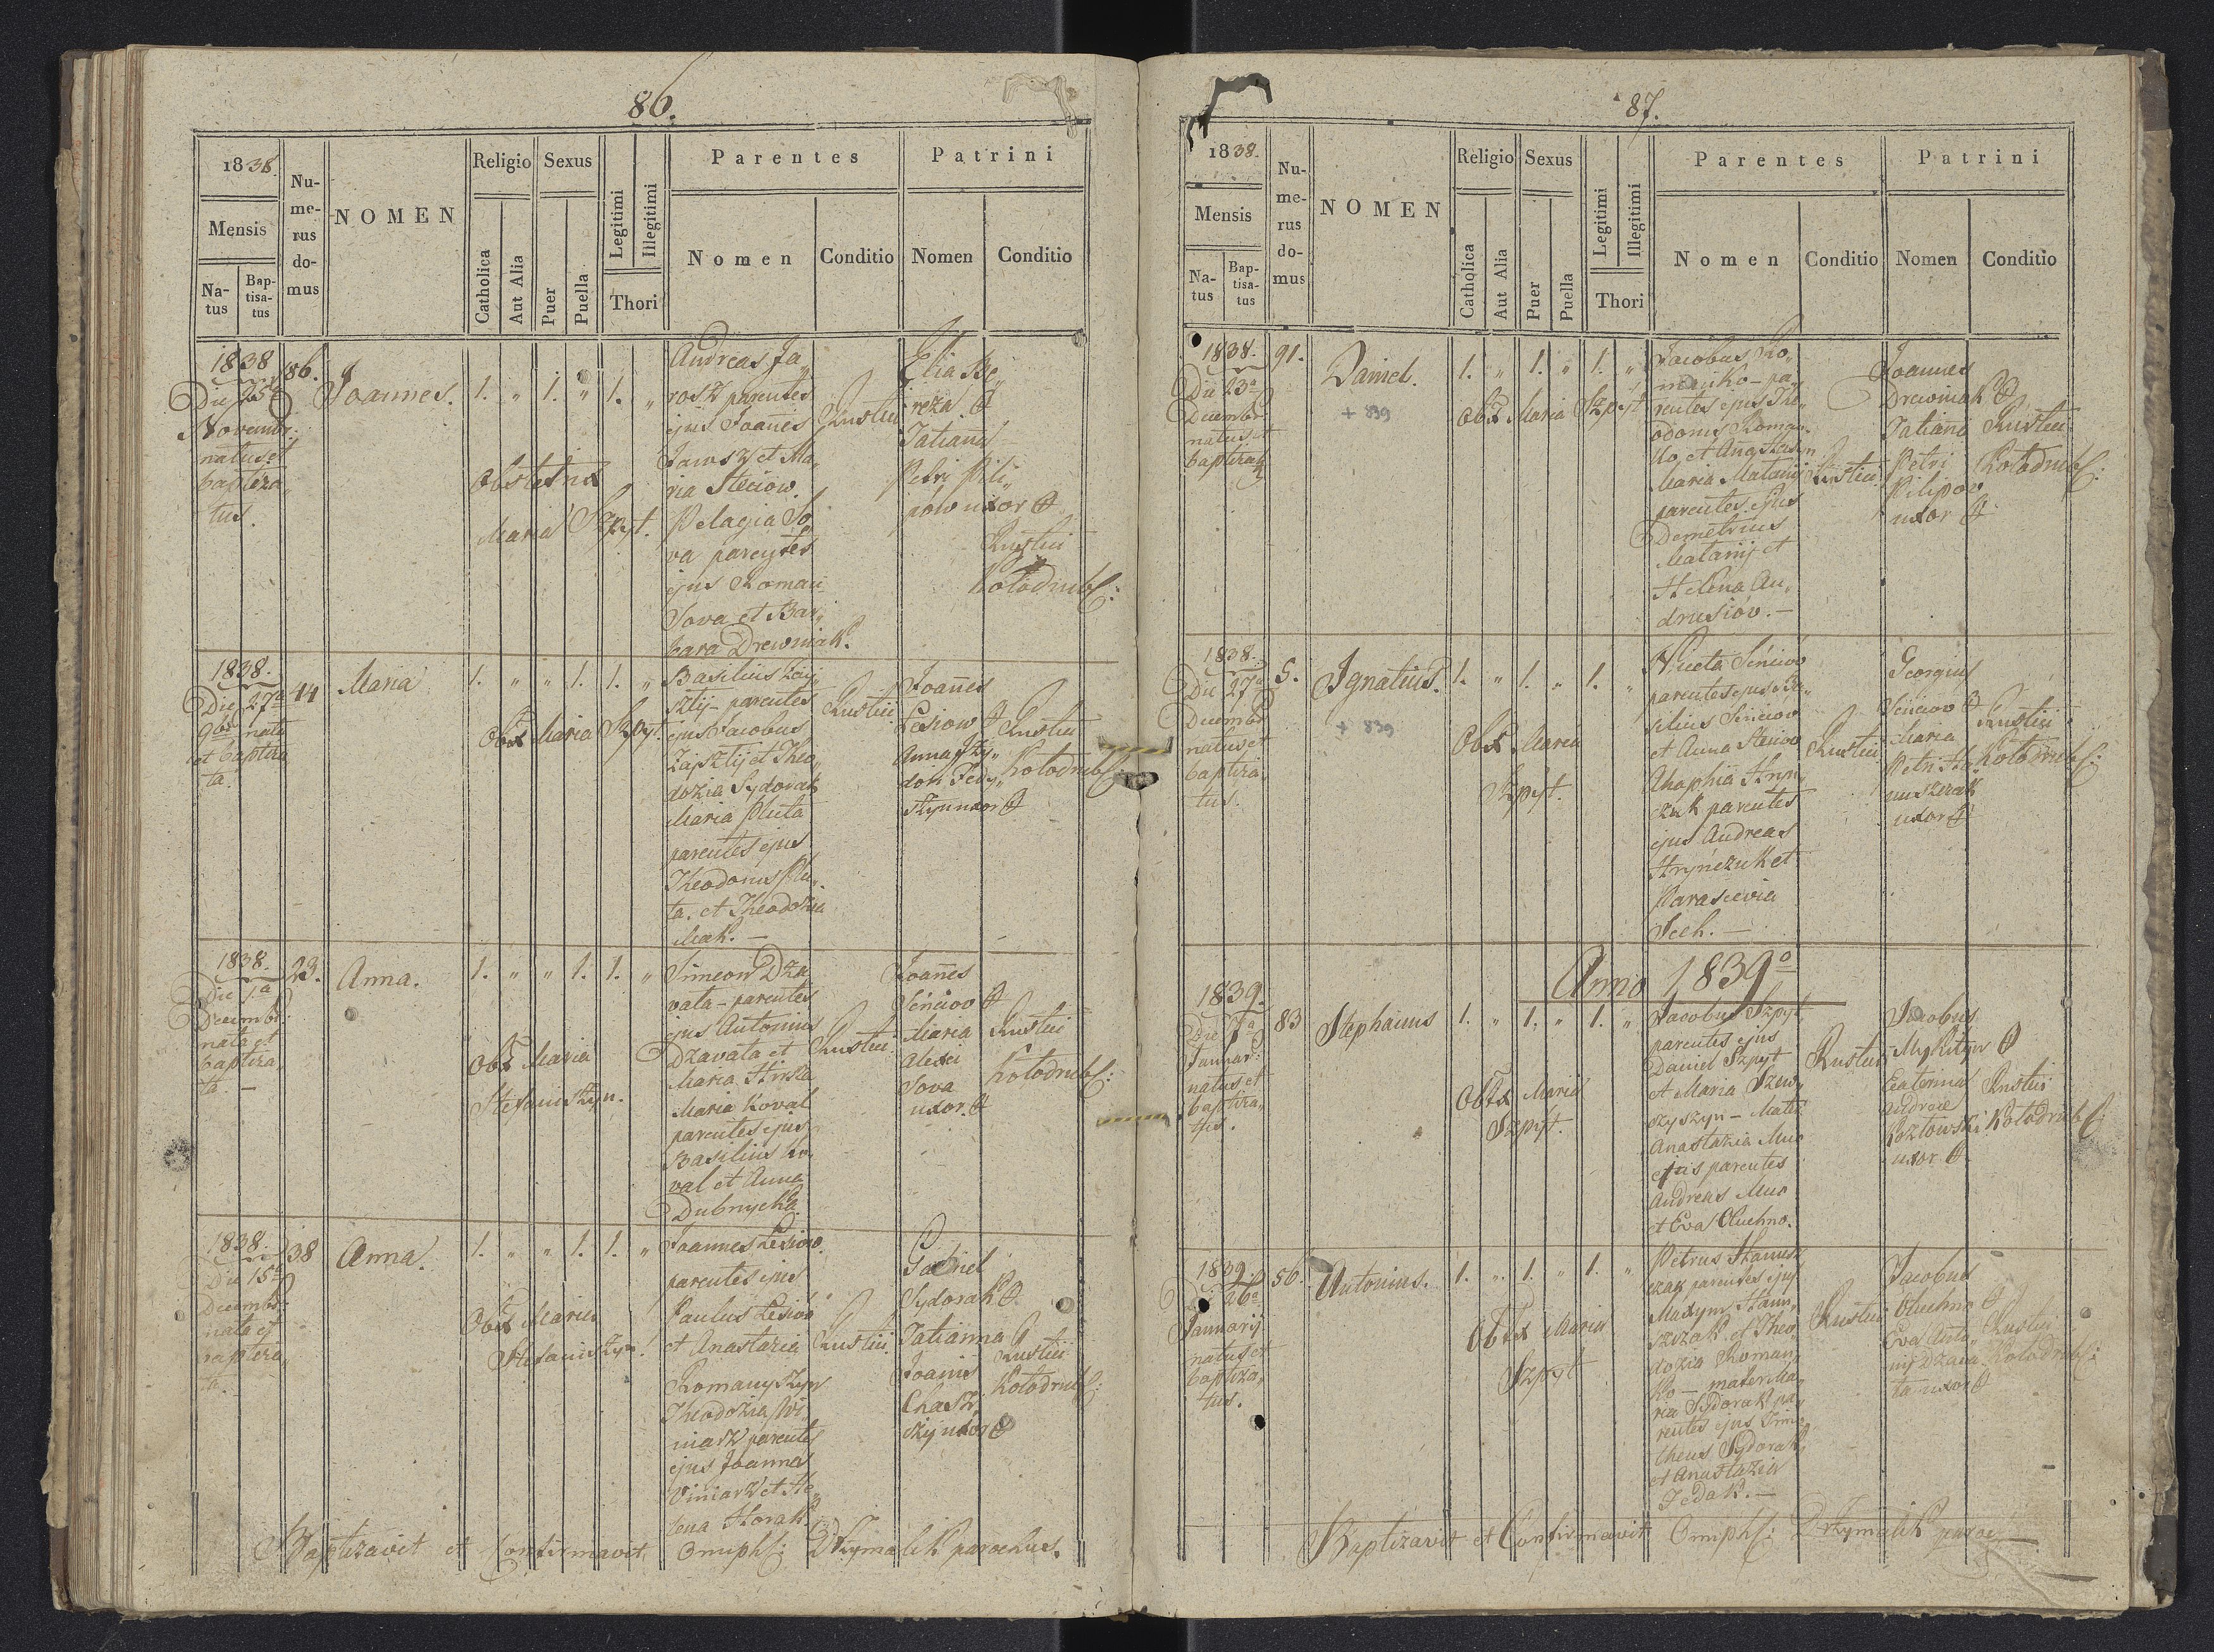 86.
1838.
Mensis
Na-
tus
Bap-
tisa-
tus
Nu-
me-
rus
do-
mus
NOMEN
Religio
Catholica
Aut Alia
Sexus
Puer
Puella
Legitimi
Illegitimi
Thori
Parentes
Nomen
Conditio
Patrini
Nomen
Conditio
1838
Die 25a
Novembr:
natus et
baptiza„
tus.
86.
Joannes.
1. „ 1. „ 1. „
Obstetrix
Maria Szpyt.
Andreas Ja„
rosz parentes
ejus Joañes
Jarosz et Ma„
ria Steciow.
Pelagia So„
va parentes
ejus Roman
Sova et Bar„
bara Drewniak.
Rustici
Elia Be„
reza
Tatiana
Petri Pili„
pów uxor
Rustici
Kołodrubs:
1838.
Die 27a
9bris nata
et baptiza
ta.
44
Maria
1. „ „ 1. 1. „
Obst Maria Szpyt.
Basilius Zaj„
sztij parentes
ejus Jacobus
Zajsztij et Theo„
dozia Sydorak
Maria Pluta
parentes ejus
Theodorus Plu„
ta. et Theodozia
Mak. —
Rustici
Joañes
Lesiow
Anna
uxor
Rustici
Kołodrubs:
1838.
Die 1a
Decembr:
nata et
baptiza„
ta. —
23.
Anna.
1. „ „ 1. 1. „
Obst Maria
Stefaniszyn.
Simeon Dza
vata – parentes
ejus Antonius
Dzavata et
Maria Hirka
Maria Koval
parentes ejus
Basilius Ko„
val et Anna
Dubnycka.
Rustici
Joañes
Seńciow
Maria
Alexi
Sova
uxor
Rustici
Kołodrubs:
1838.
Die 15a
Decembr:
nata et
baptiza„
ta.
38
Anna.
1. „ „ 1. 1. „
Obst Maria
Stefaniszyn.
Joannes Lesiow.
parentes ejus
Paulus Lesiów
et Anastazia
Romanyszyn
Theodozia Wi„
niarz parentes
ejus Joannes
Viniarz et He„
lena Horak.
Rustici
Gabriel
Sydorak
Tatianna
Joanis
uxor
Rustici
Kołodrubs:
Baptizavit et Confirmavit Omiphs: Dzymalik parochus.
87.
1838.
Mensis
Na-
tus
Bap-
tisa-
tus
Nu-
me-
rus
do-
mus
NOMEN
Religio
Catholica
Aut Alia
Sexus
Puer
Puella
Legitimi
Illegitimi
Thori
Parentes
Nomen
Conditio
Patrini
Nomen
Conditio
1838.
Die 23a
Decembr
natus et
baptizat
91.
Daniel.
+ 839
1. „ 1. „ 1. „
Obst Maria Szpyt
Jacobus Ro„
manko – pa„
rentes ejus The„
odorus Roman„
ko, et Ana
Maria Matanij
parentes ejus
Demetrius
Matanij et
Helena An„
drusiów. —
Rustici
Joannes
Drewniak
Tatiana
Petri
Pilipow
uxor
Rustici
Kołodrubs:
1838.
Die 27a
Decembr
natus et
baptiza„
tus.
5.
Ignatius.
+ 839
1. „ 1. „ 1. „
Obst Maria
Szpyt.
Niceta Seńciow
parentes ejus Ba„
silius Seńciow
et Anna Steciow
Ahaphia Hryn„
czuk parentes
ejus Andreas
Hrynczuk et
Parascevia
Sech. —
Rustici
Georgius
Seńciow
Maria
Petri Ha„
nuszczak
uxor
Rustici
Kołodrubs:
Anno 1839o
1839.
Die 7a
Januar:
natus et
baptiza„
tus.
83
Stephanus
1. „ 1. „ 1. „
Obstx Maria
Szpyt.
Jacobus Szpyt,
parentes ejus
Daniel Szpyt
et Maria Szew„
czyszyn – Mater
Anastazia Muc
ejus parentes
Andreas Muc
et Eva Oluchno.
Rustici
Jacobus
Mykityn
Catarina
Andreae
Kozłowski
uxor
Rustici
Kołodrubs:
1839.
Die 26a
Januarij
natus et
baptiza„
tus.
56.
Antonius.
1. „ 1. „ 1. „
Obstx Maria
Szpyt
Petrus Hanusz
czak parentes ejus
Maxym Hanu„
szczak et Theo„
dozia Roman„
ko — mater Ma„
ria Sydorak pa„
rentes ejus Timo„
theus Sydorak,
et Anastazia
Fedak. —
Rustici
Jacobus
Oluchno
Eva Anto„
nij Dzava„
ta uxor
Rustici
Kołodrubs:
Baptizavit et Confirmavit Omiphs: Dzymalik paroc